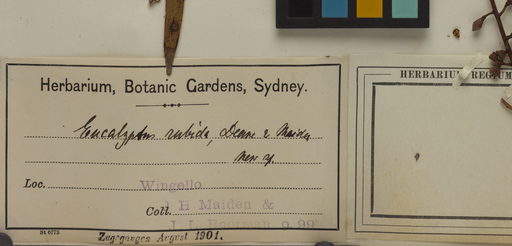 Herbarium, Botanic Gardens, Sydney.
HERBARIUM REGIUM
Eucalyptus rubida, Deane & Maiden
Loc. Wingello
Coll. J H Maiden &
J. L. Boorman 9.99
St 6773
Zugegangen August 1901.